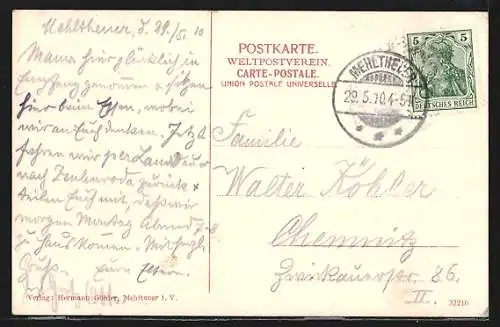 Mehltheuer, d. 29/5. 10
Mama hier glücklich in
Empfang genommen & sitzen
hier beim Essen, wobei
wir an Euch denken. Jetzt
fahren wir per Landauer
nach Zeulenroda zurück &
teilen Euch mit, daß wir
morgen Montag Abend 7-8
zu Haus kommen. Mit herzl.
Gruß
Eure Eltern.
Verlag: Hermann Günther, Mehltheuer i. V.
POSTKARTE.
WELTPOSTVEREIN.
CARTE-POSTALE.
UNION POSTALE UNIVERSELLE
MEHLTHEUER
29.5.10.4-5
5 5
DEUTSCHES REICH
Familie
Walter Köhler
Chemnitz
Zwickauerstr. 86.
II.